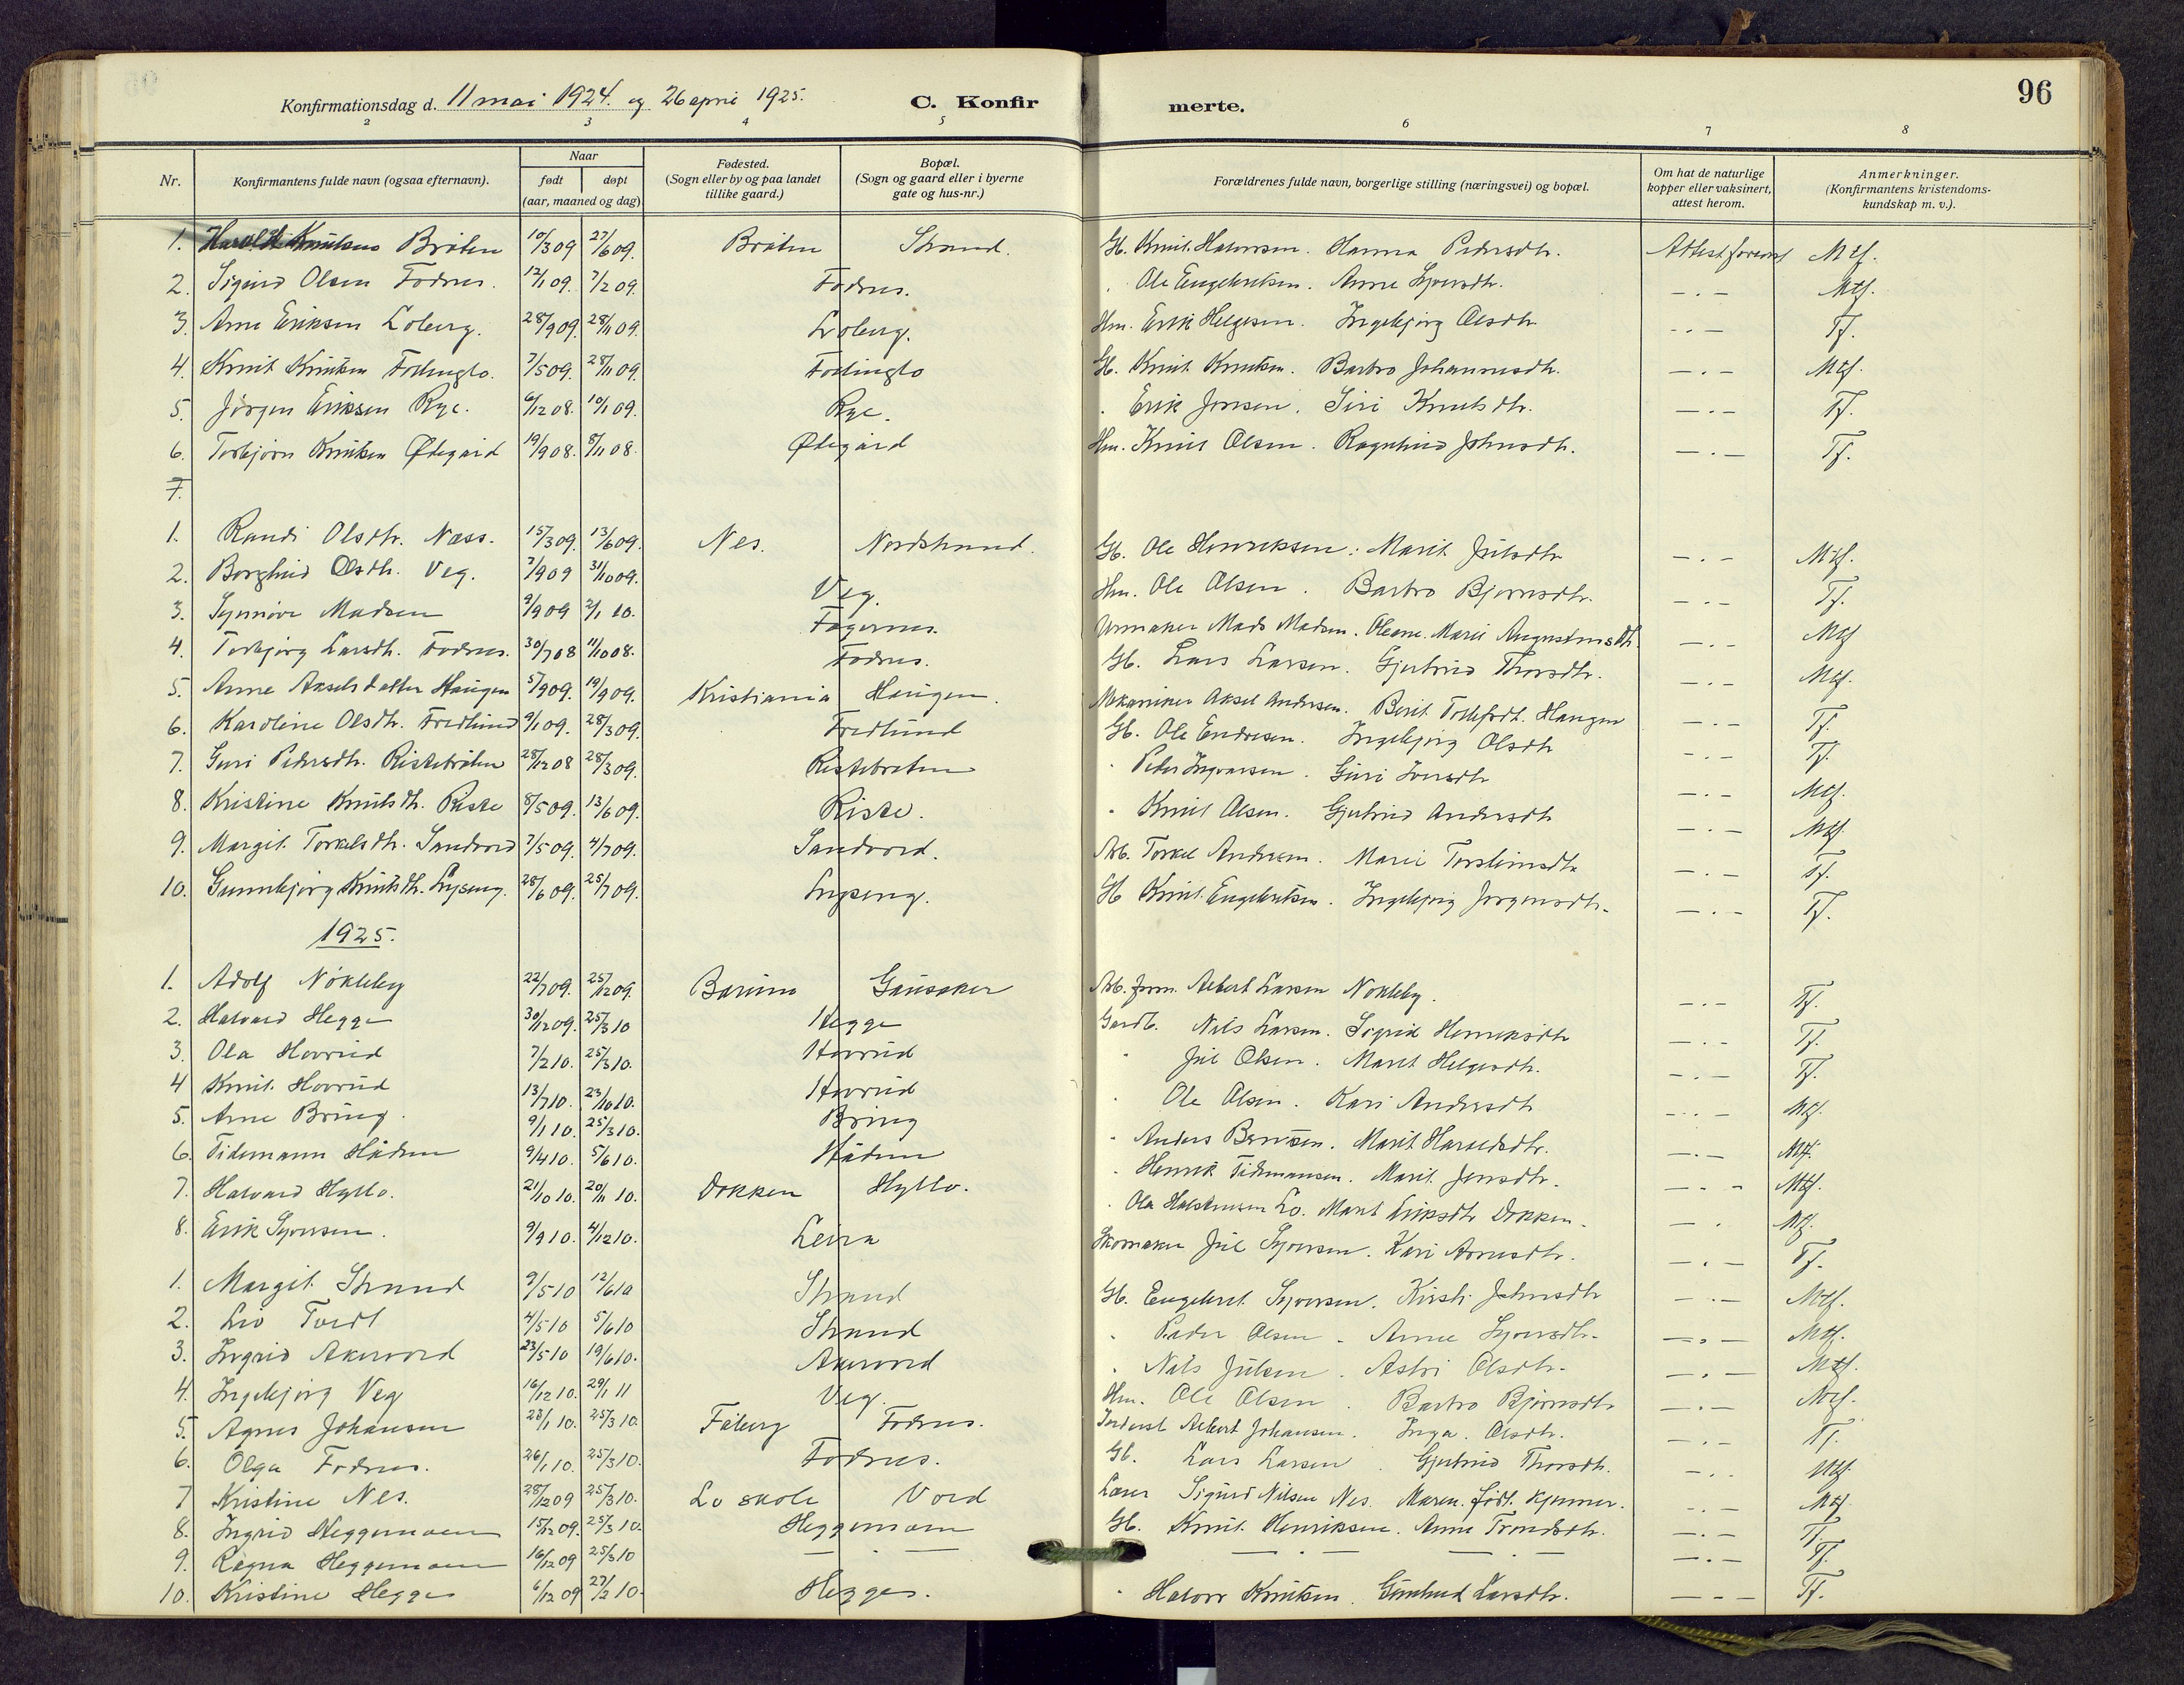 96
Konfirmationsdag d. 11 mai 1924. og 26 april 1925. C. Konfirmerte.
2 3 4 5 6 7 8
Nr. Konfirmantens fulde navn (ogsaa efternavn). Naar født døpt (aar, maaned og dag) Fødested. (Sogn eller by og paa landet tillike gaard.) Bopæl. (Sogn og gaard eller i byerne gate og hus-nr.) Forældrenes fulde navn, borgerlige stilling (næringsvei) og bopæl. Om hat de naturlige kopper eller vaksinert, attest herom. Anmerkninger. (Konfirmantens kristendomskundskap m. v.).
1. Harald Knutsen Bråten 10/3 09 27/6 09. Bråten Strand. Gb. Knut Halvorsen. Hanna Pedersdtr. Attest forevist Mtf.
2. Sigurd Olsen Fodnes. 12/1 09. 7/2 09. Fodnes. Ole Engebretsen. Anne Syversdtr. — . — Mtf.
3. Arne Eriksen Loberg. 28/9 09. 28/11 09. Loberg. Hm. Erik Helgesen. Ingebjørg Olsdtr. — . — Tf.
4. Knut Knutsen 7/5 09. 28/11 09. Gb. Knut Knutsen. Barbro Johannesdtr. — . — Mtf.
5. Jørgen Eriksen Rye. 6/12 08. 10/1 09. Rye. Erik Jonsen. Siri Knutsdtr. — . — Tf.
6. Torbjørn Knutsen Ødegård 19/9 08. 8/11 08. Ødegård Hm. Knut Olsen. Ragnhild Johnsdtr. — . — Tf.
7.
1. Randi Olsdtr. Næss. 15/3 09. 13/6 09. Nes. Nordstrand. Gb. Ole Henriksen. Marit Julsdtr. — . — Mtf.
2. Borghild Olsdtr. Veg. 7/9 09 31/10 09. Veg. Hm. Ole Olsen. Barbro Bjørnsdtr. — . — Tf.
3. Synnøve Madsen 9/9 09 2/1 10. Fagernes. Urmaker Mads Madsen. Oleane Marie Augustinusdtr. — . — Mtf
4. Torbjørg Larsdtr. Fodnes. 30/7 08 11/10 08. Fodnes. Gb. Lars Larsen. Gjertrud Thorsdtr. — . — Mtf.
5. Anne Akselsdatter Haugen 5/9 09. 19/9 09. Kristiania Haugen. Mekaniker Aksel Andersen. Berit Tollefsdt. Haugen — . — Tf.
6. Karoline Olsdtr. Fredlund 9/1 09. 28/3 09. Fredlund Gb. Ole Endresen. Ingebjørg Olsdtr — . — Tf.
7. Guri Pedersdtr. Ristebråten 28/12 08 28/3 09. Ristebråten Peder Ingvarsen. Guri Iversdtr — . — Mtf.
8. Kristine Knutsdtr. Riste 8/5 09. 13/6 09. Riste. Knut Olsen. Gjertrud Andersdtr — . — Mtf.
9. Margit Torkelsdtr. Sandvord 7/5 09. 4/7 09. Sandvord. Arb. Torkel Andersen. Marie Torsteinsdtr — . — Tf.
10. Gunnbjørg Knutsdtr. Lyseng. 28/6 09. 25/7 09. Lyseng. Gb Knut Engebretsen. Ingebjørg Jørgensdtr. — . — Tf.
1925.
1. Adolf Nökleby 22/7 09. 25/12 09. Bærum Gausaker Arb. form. Albert Larsen Nökleby. — . — Tf.
2. Halvard Hegge 30/12 09. 25/3 10 Hegge Gardb. Nils Larsen. Sigrid Henriksdtr — . — Tf.
3. Ola Hovrud 7/2 10. 25/3 10. Hovrud Jul Olsen. Marit Helgesdtr. — . — Tf.
4 Knut Hovrud 13/7 10. 23/10 10. Hovrud Ole Olsen. Kari Andersdtr — . — Mtf.
5. Arne Bring. 9/1 10. 25/3 10. Bring Anders Marit Haraldsdtr. — . — Mtf.
6. Tidemann Håden 9/4 10. 5/6 10. Håden Henrik Tidemansen. Marit Jensdtr. — . — Mtf.
7. Halvard Hyllo. 21/10 10. 20/11 10. Dokken Hyllo. Ola Halstensen Lo. Marit Eriksdtr Dokken. — . Mtf.
8. Erik Syversen. 9/9 10. 4/12 10. Leira Skomaker Jul Syversen. Kari Arnesdtr. — . — Tf.
1. Margit Strand 9/5 10 12/6 10 Strand Gb. Engebret Syversen. Kirsti Johnsdtr — . — Mtf.
2. Liv 4/5 10 5/6 10 Strand Peder Olsen. Anne Syversdtr. — . — Mtf.
3. Ingrid Akervord 23/5 10 19/6 10. Akervord Nils Julsen. Astri Olsdtr. — . — Mtf.
4. Ingebjørg Veg 16/12 10. 29/1 11 Veg. Hm. Ole Olsen. Barbro Bjørnsdtr. — . — Mtf.
5. Agnes Johansen 23/1 10. 25/3 10. Fåberg Fodnes. Albert Johansen. Inga Olsdtr. — . — Tf.
6. Olga Fodnes. 26/1 10. 25/3 10. Fodnes. Gb. Lars Larsen. Gjertrud Thorsdtr. — . . Mtf.
7 Kristine Nes. 28/12 09 25/3 10. Lo skole Vord Lærer Sigurd Nilsen Nes. Maren født — . — Mtf.
8. Ingrid Heggemoen 15/12 09. 25/3 10. Heggemoen Gb. Knut Henriksen. Anne Trondsdtr. — . — Tf.
9. Ragna Heggemoen 16/12 09 25/3 10 — . — — . — — . — Tf.
10. Kristine Hegge 6/12 09 27/2 10. Hegge. Halvor Knutsen. Gunhild Larsdtr. — . — Tf.